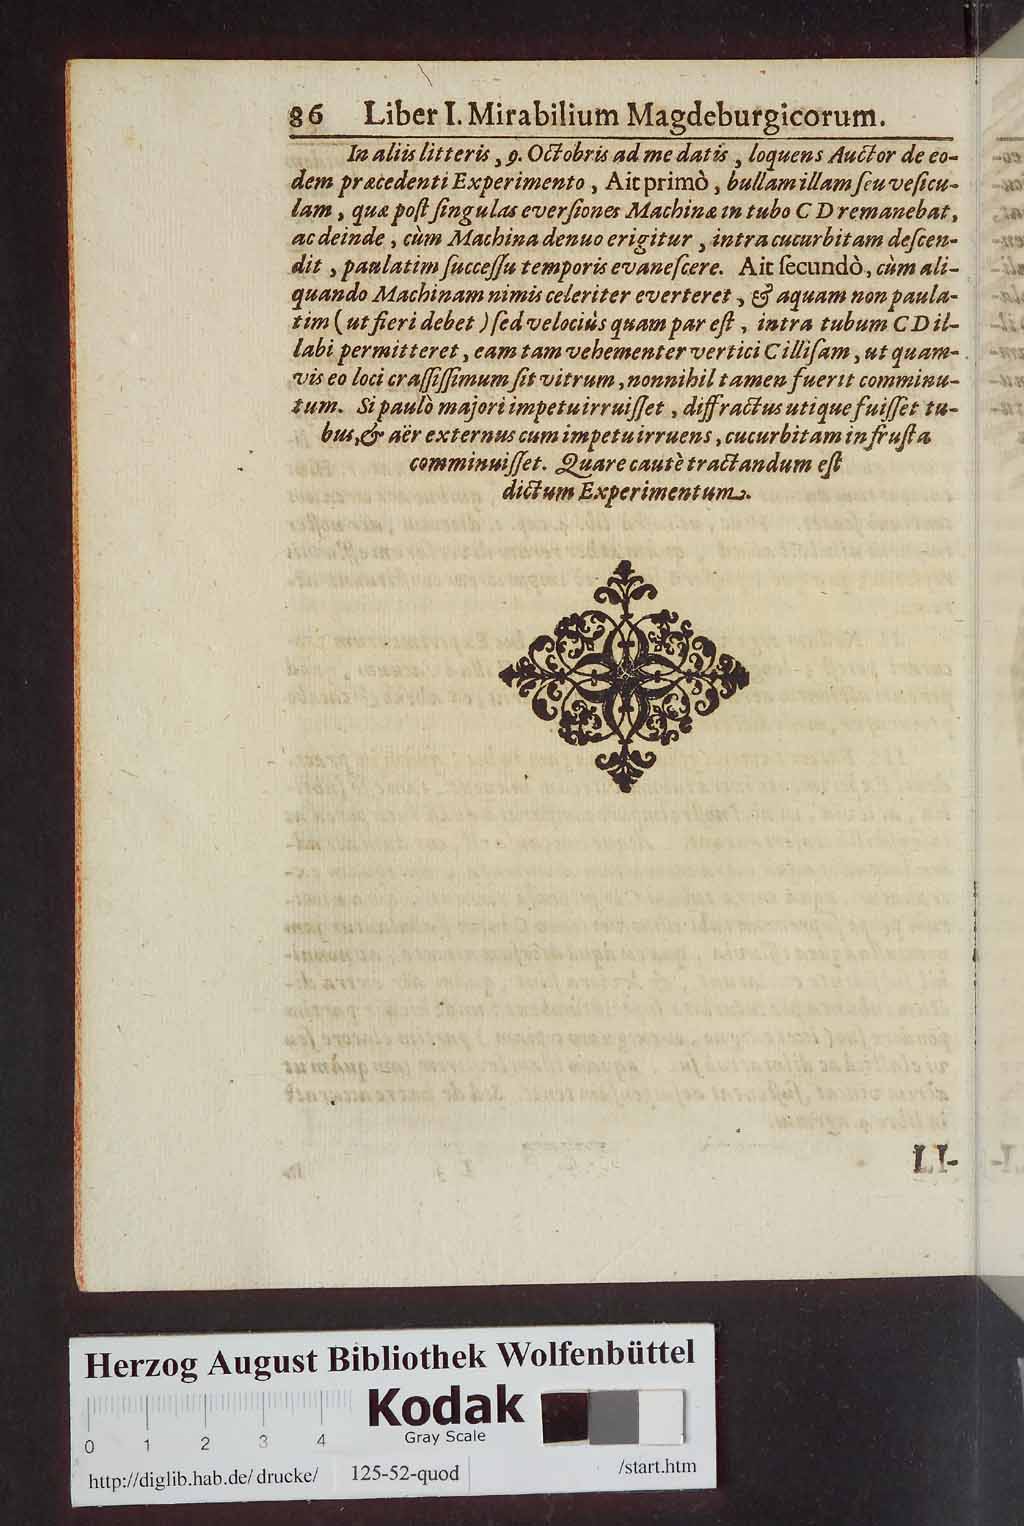 86 Liber I. Mirabilium Magdeburgicorum.
In aliis litteris, 9. Octobris ad me datis, loquens Auctor de eo-
dem præcedenti Experimento, Ait primò, bullam illam ſeu veſicu-
lam, quæ poſt ſingulas everſiones Machinæ in tubo C D remanebat,
ac deinde, cùm Machina denuo erigitur, intra cucurbitam deſcen-
dit, paulatim ſucceſſu temporis evaneſcere. Ait ſecundò, cùm ali-
quando Machinam nimis celeriter everteret, & aquam non paula-
tim (ut fieri debet) ſed velociùs quam par eſt, intra tubum C D il-
labi permitteret, eam tam vehementer vertici C illiſam, ut quam-
vis eo loci craſſiſſimum ſit vitrum, nonnihil tamen fuerit comminu-
tum. Si paulò majori impetu irruiſſet, diffractus utique fuiſſet tu-
bus, & aër externus cum impetu irruens, cucurbitam in fruſta
comminuiſſet. Quare cautè tractandum eſt
dictum Experimentum.
LI-
Herzog August Bibliothek Wolfenbüttel
Kodak
Gray Scale
0 1 2 3 4
http://diglib.hab.de/drucke/ 125-52-quod /start.htm